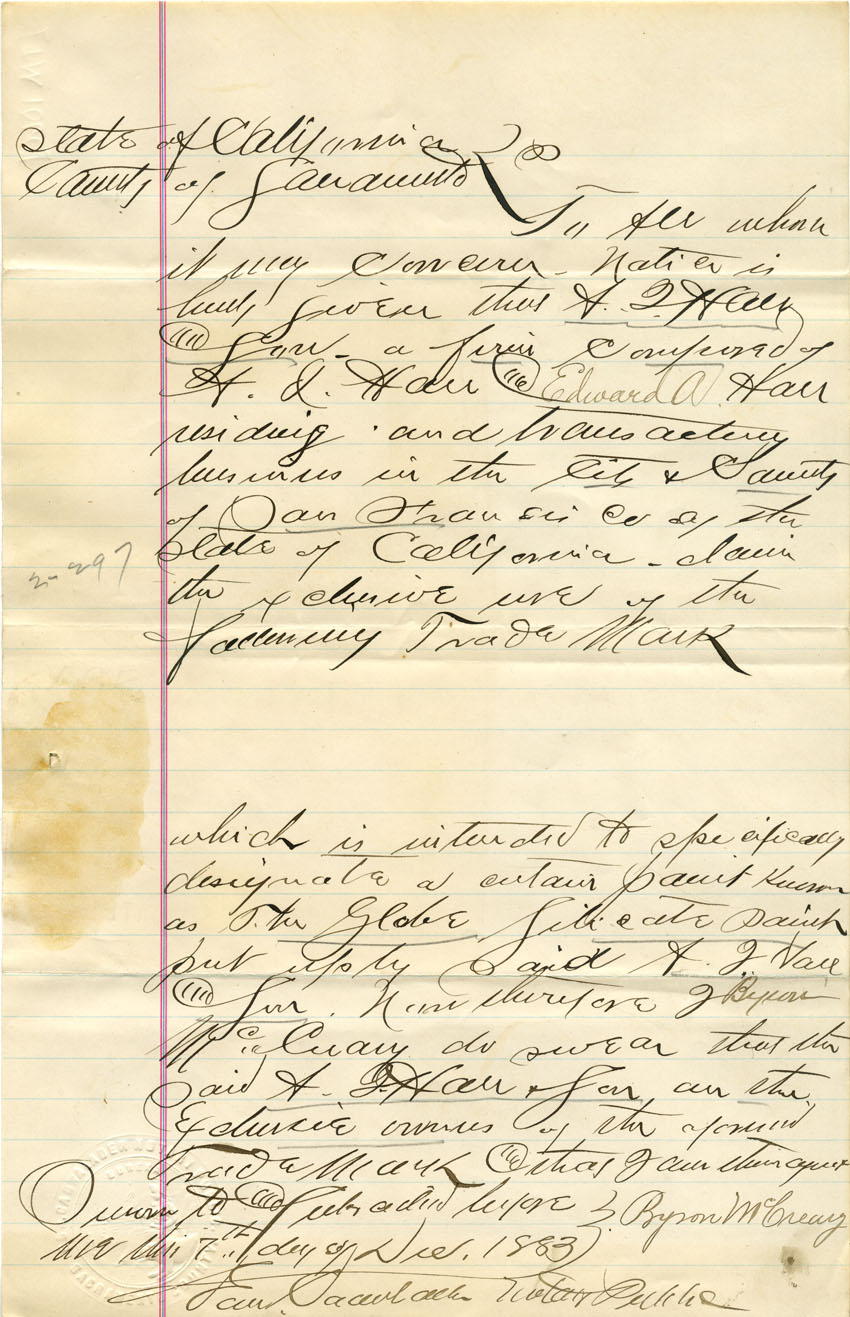 State of California } ss
County of Sacramento
To All whom
it may Concern. Notice is
hereby given that A. J. Hall
& Son - a firm Composed of
A. J. Hall & Edward A. Hall
residing and transacting
business in the City & County
of San Francisco of the
State of California - claim
the exclusive use of the
following Trade Mark
2-297
which is intended to specifically
designate a certain paint Known
as The Globe Silicate paint
put up by said A. J. Hall
& Son. Now therefore I Byron
McCreary do swear that the
said A. J. Hall & Son are the
Exclusive owners of the aforesaid
Trade Mark & that I am their agent
Sworn to & Subscribed before } Byron McCreary
me this 7th day of Dec. 1883
Notary Public